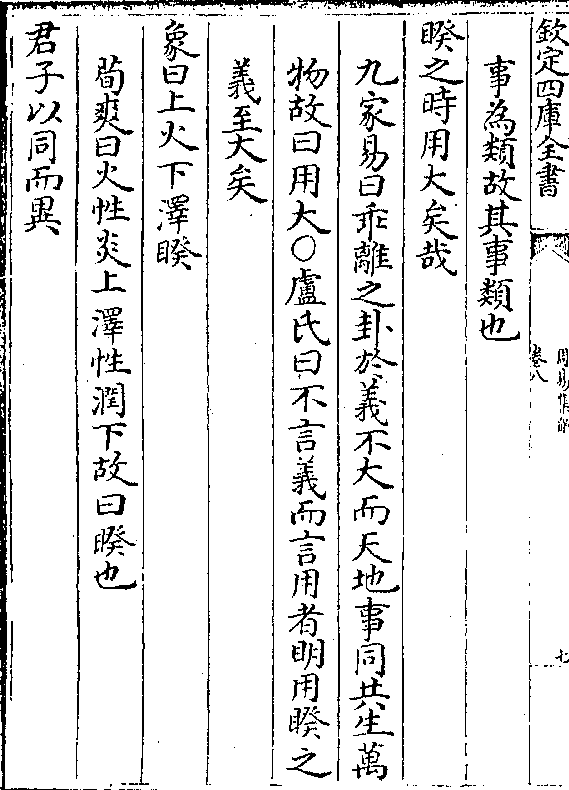 欽定四庫全書
周易集解
卷八
七
事為類故其事類也
睽之時用大矣哉
九家易曰乖離之卦於義不大而天地事同共生萬
物故曰用大○盧氏曰不言義而言用者明用睽之
義至大矣
象曰上火下澤睽
荀爽曰火性炎上澤性潤下故曰睽也
君子以同而異